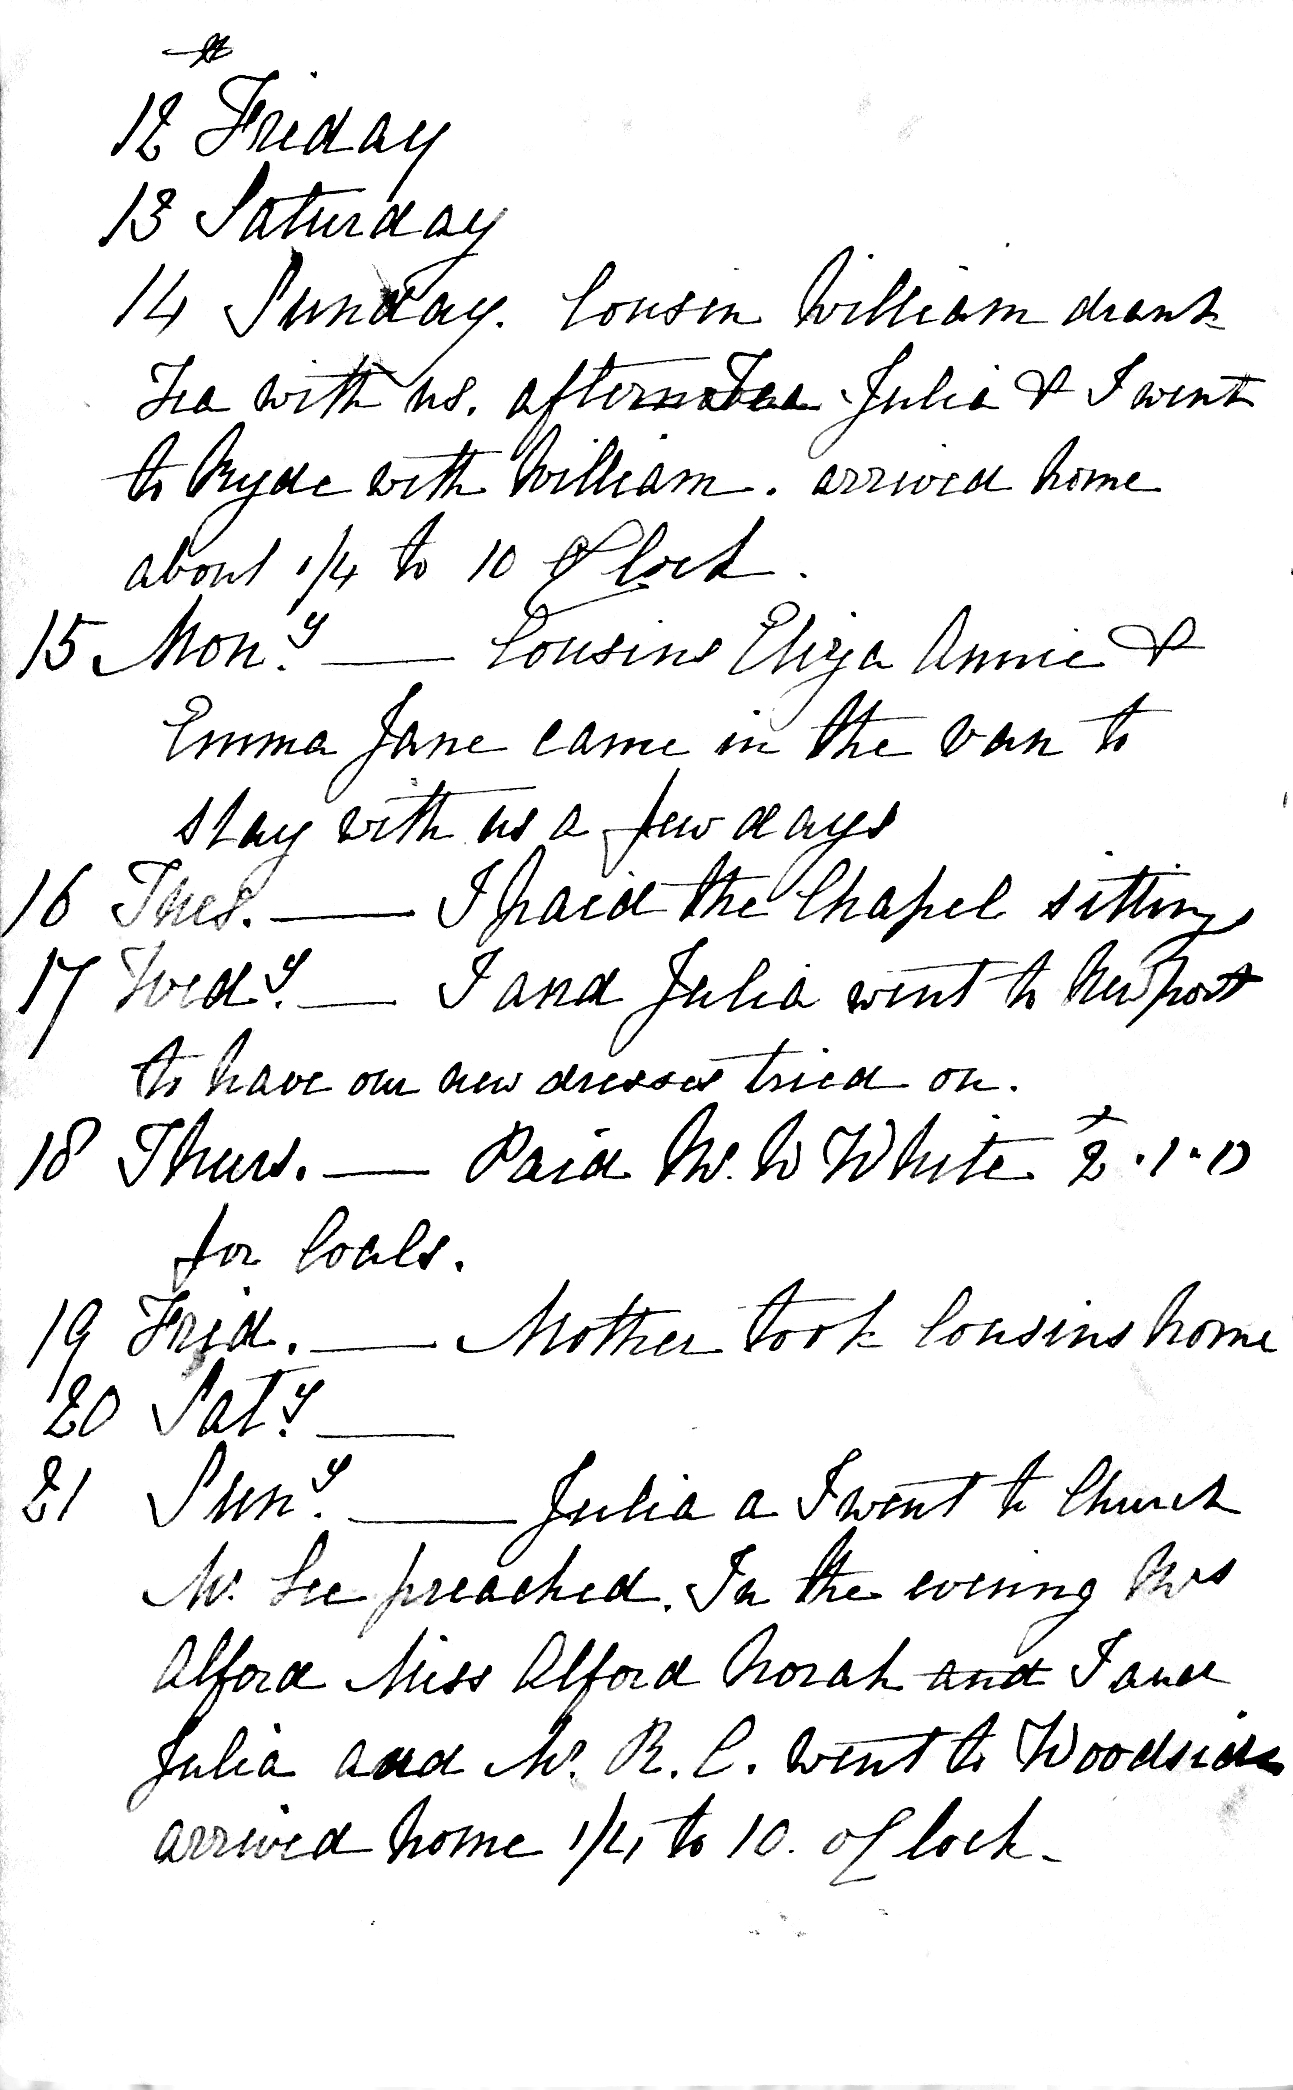 12 Friday
13 Saturday
14 Sunday. Cousin William drank
Tea with us. after Tea Julia & I went
to Ryde with William. arrived home
about 1/4 to 10 O'Clock.
15 Mon.y — Cousins Eliza Annie &
Emma Jane came in the van to
stay with us a few days
16 Tues. — I paid the Chapel sittings
17 Wed.y — I and Julia went to Newport
to have our new dresses tried on.
18 Thurs. — Paid Mr. W White £2.1.0
for Coals.
19 Frid. — Mother took Cousins home
20 Sat.y —
21 Sun.y — Julia a I went to Church
Mr. Lee preached. In the evening Mrs
Alford Miss Alford Norah and I and
Julia and Mr. R. C. went to Woodside
arrived home 1/4 to 10. o'Clock.